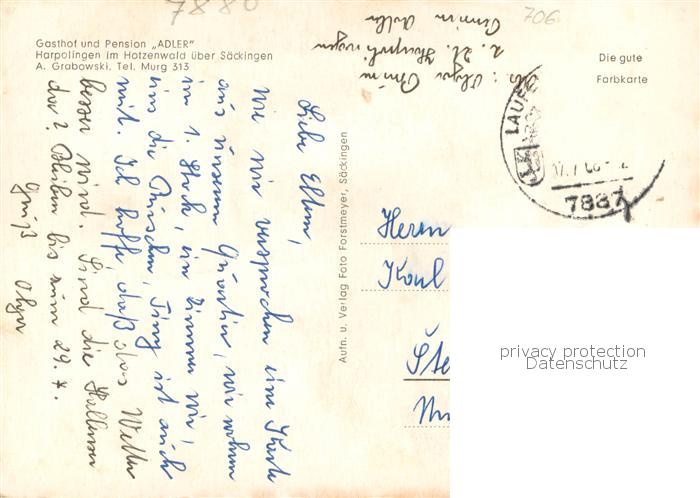 7880
706
Gasthof und Pension „ADLER"
Harpolingen im Hotzenwald über Säckingen
A. Grabowski. Tel. Murg 313
Die gute
Farbkarte
Adler
Liebe Eltern,
wie wir versprochen eine Karte
aus unserem Quartier, wir wohnen
im 1. Stock, ein Zimmer wir,
eins die Tirschen, Jimy ist auch
mit. Ich hoffe, daß das Wetter
besser wird. Sind die
da? bis zum 29. 7.
Gruß Olga
Aufn. u. Verlag Foto Forstmeyer, Säckingen
LAUFE
17.7.66
7887
Herrn
Karl
Ste
privacy protection
Datenschutz